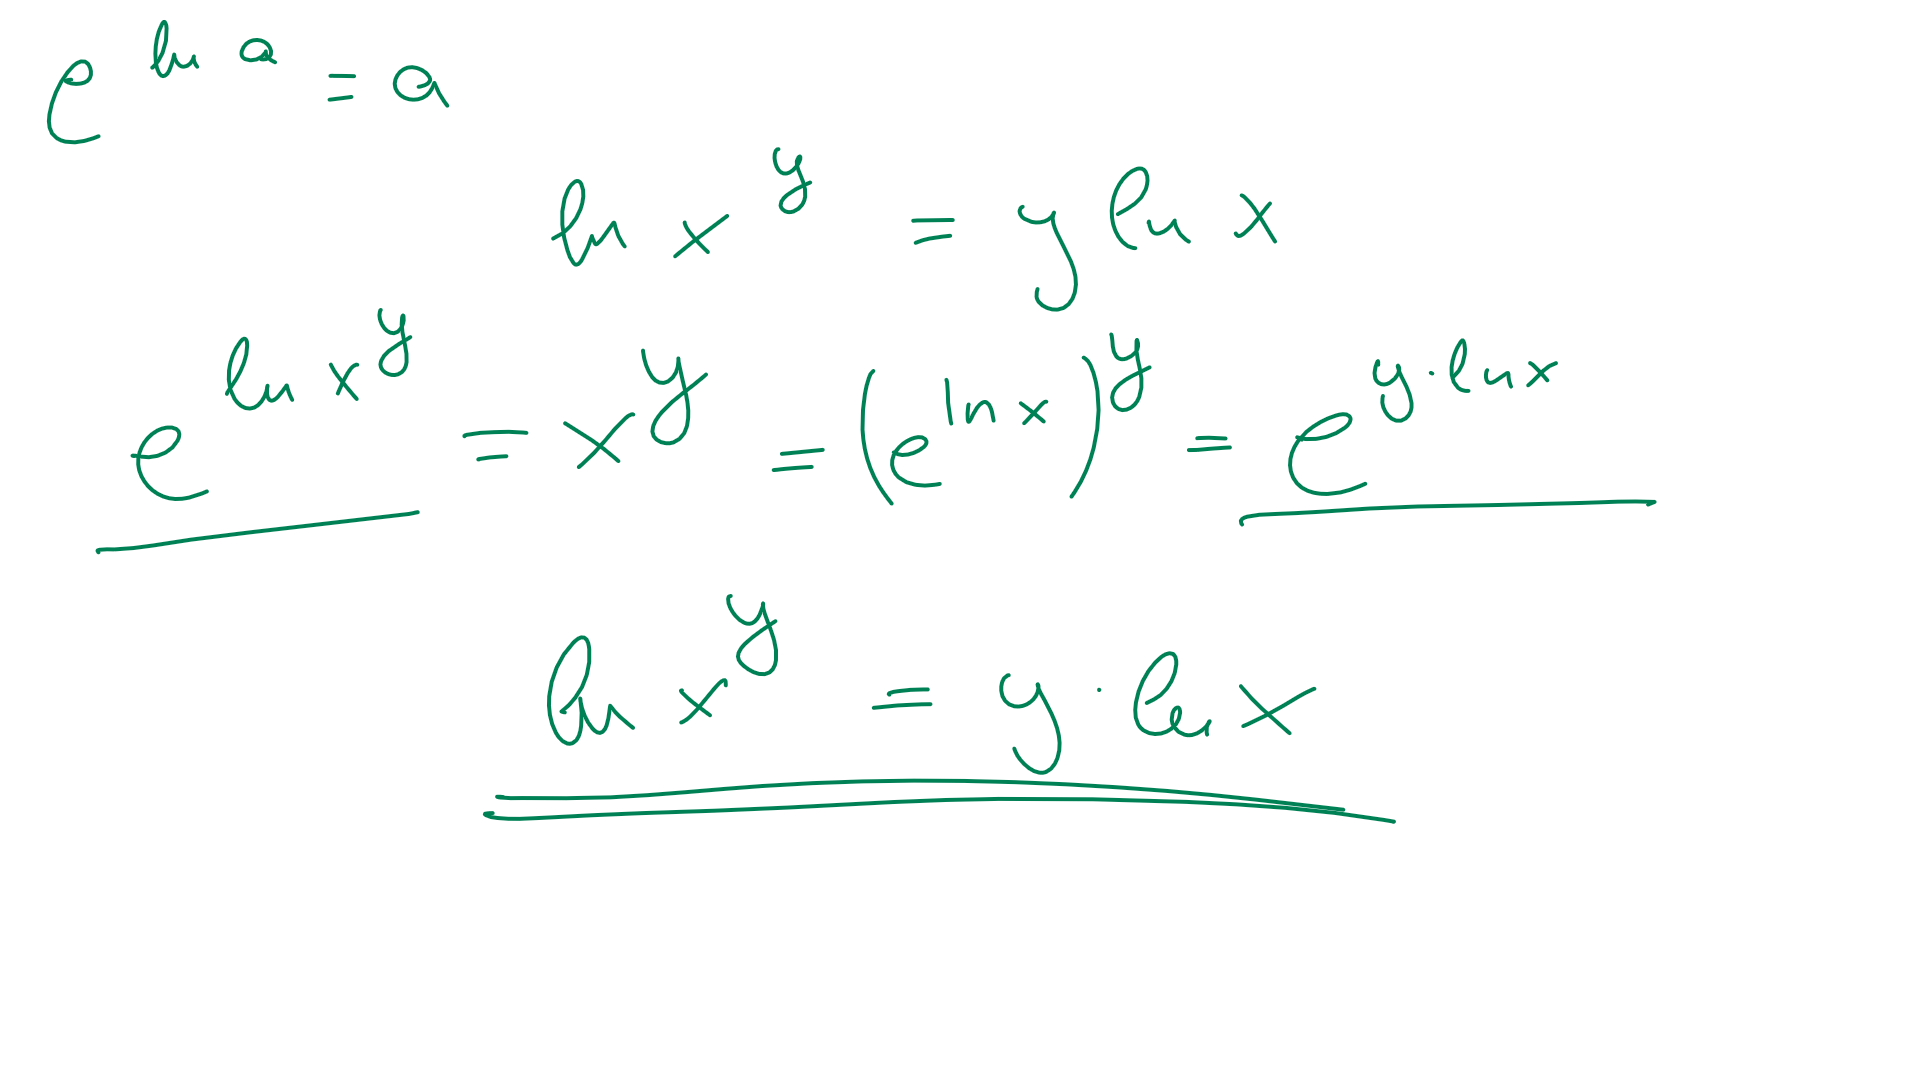 e^{ln a} = a
ln x^y = y ln x
e^{ln x^y} = x^y = (e^{ln x})^y = e^{y · ln x}
ln x^y = y · ln x